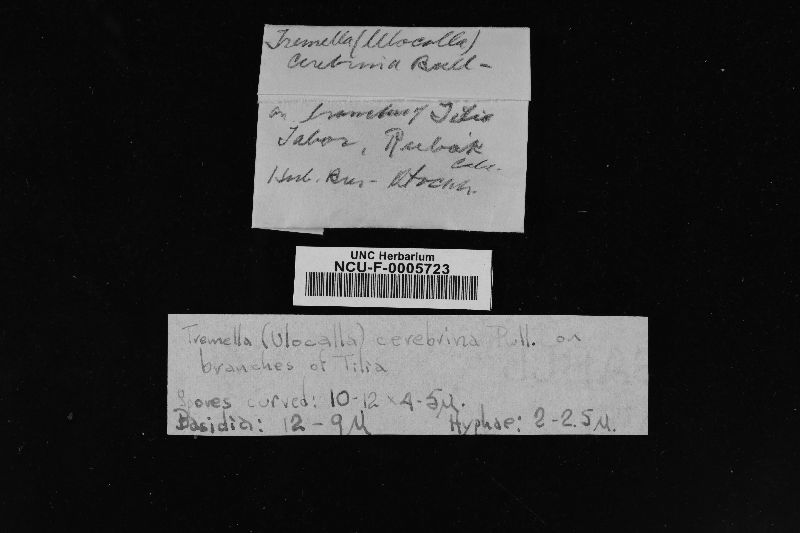 Tremella (Ulocolla)
cerebrina Bull-
on branches of Tilia
Tabor, Kubák
Herb. Bres - Stockh.
UNC Herbarium
NCU-F-0005723
Tremella (Ulocolla) cerebrina Bull. on
branches of Tilia
Spores curved: 10-12 x 4-5µ.
Basidia: 12-9µ Hyphae: 2-2.5µ.